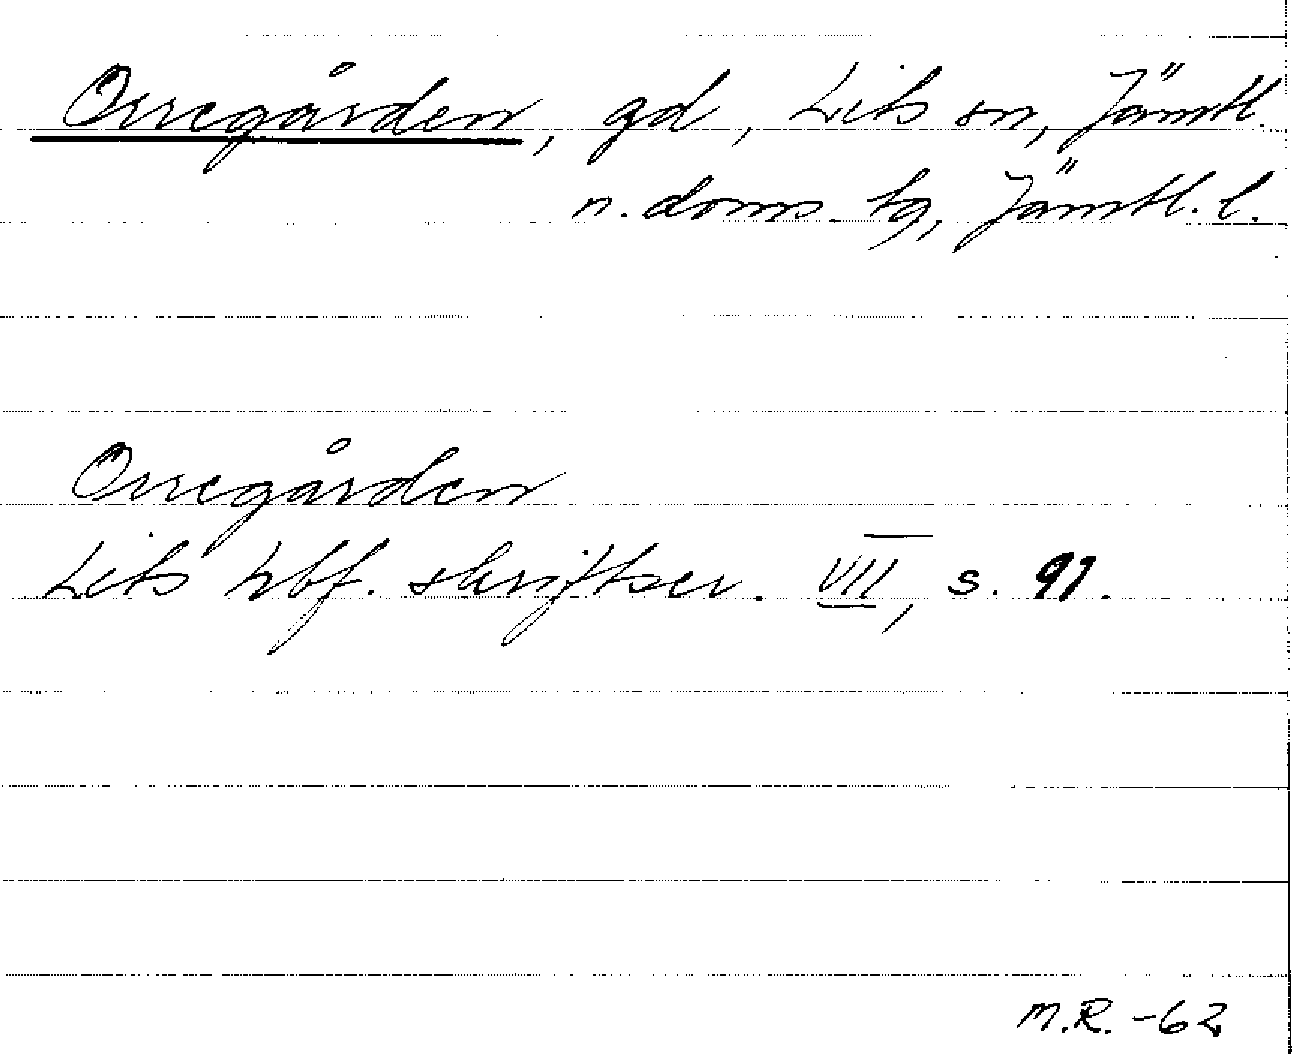 Orregården, gd, Lits sn, Jämtl.
n. doms. tg, Jämtl. l.
Orregården
Lits hbf. skriftser. VII, s. 91.
M.R. -62